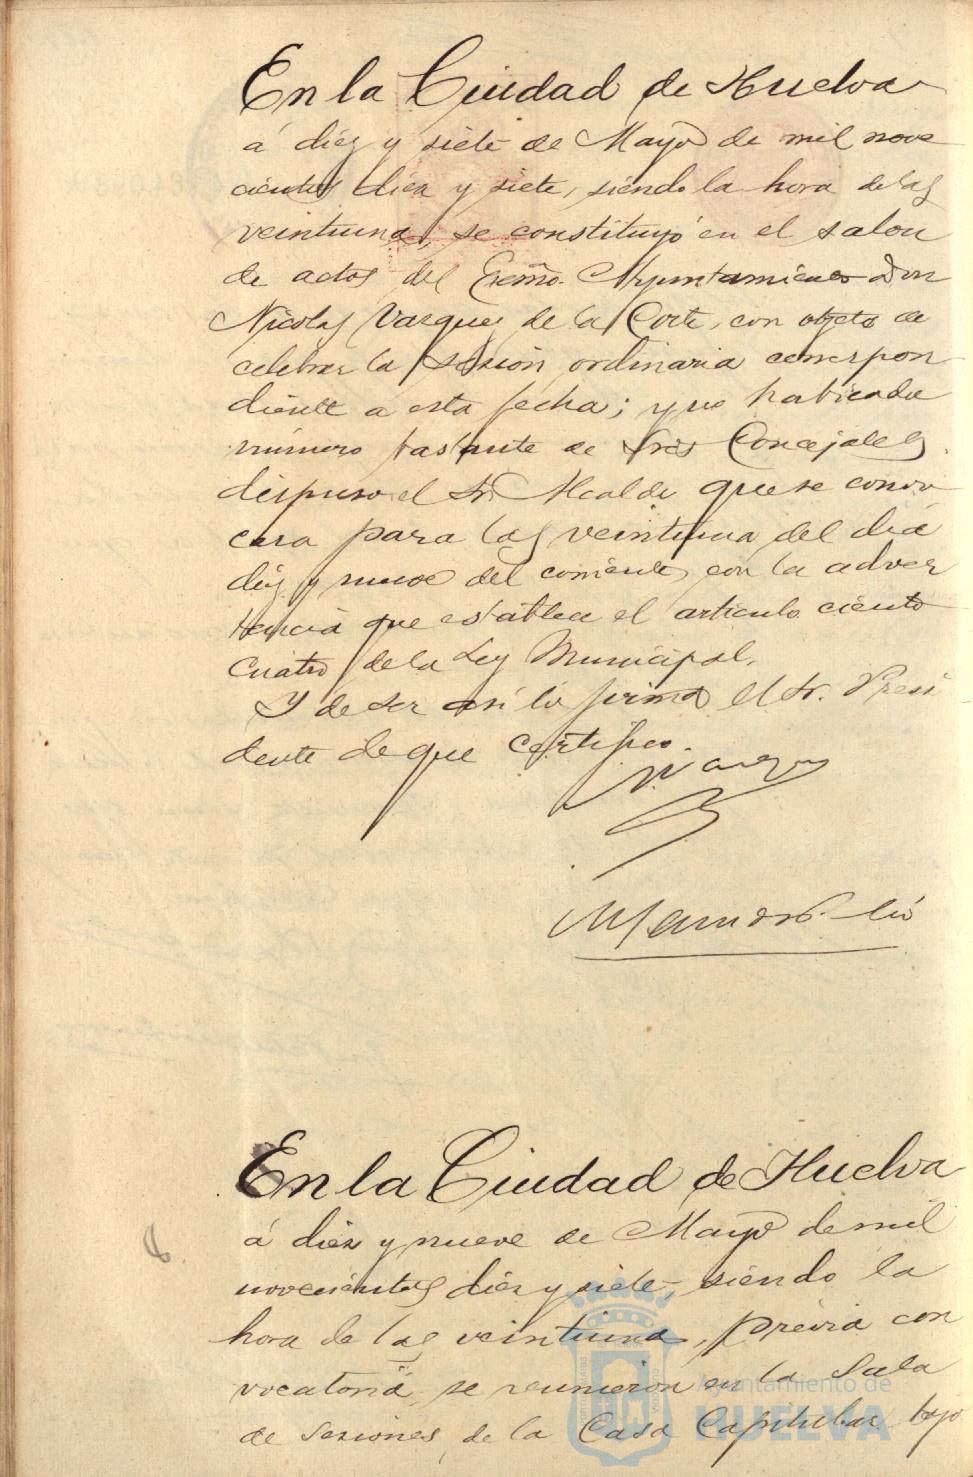 En la Ciudad de Huelva
á diez y siete de Mayo de mil nove
cientos diez y siete, siendo la hora de las
veintiuna, se constituyó en el salon
de actos del Excmo. Ayuntamiento Don
Nicolas Vazquez de la Corte, con objeto de
celebrar la sesion ordinaria correspon
diente a esta fecha; y no habiendo
número bastante de Sres Concejales
dispuso el Sr. Alcalde que se convo
cara para las veintiuna del dia
diez y nueve del corriente, con la adver
tencia que establece el articulo ciento
cuatro de la Ley Municipal.
Y de ser así lo firma el Sr. Presi
dente de que certifico.
N. Vazquez
En la Ciudad de Huelva
á diez y nueve de Mayo de mil
novecientos diez y siete, siendo la
hora de las veintiuna, prévia con
vocatoria, se reunieron en la Sala
de Sesiones de la Casa Capitular bajo
Ayuntamiento de
HUELVA